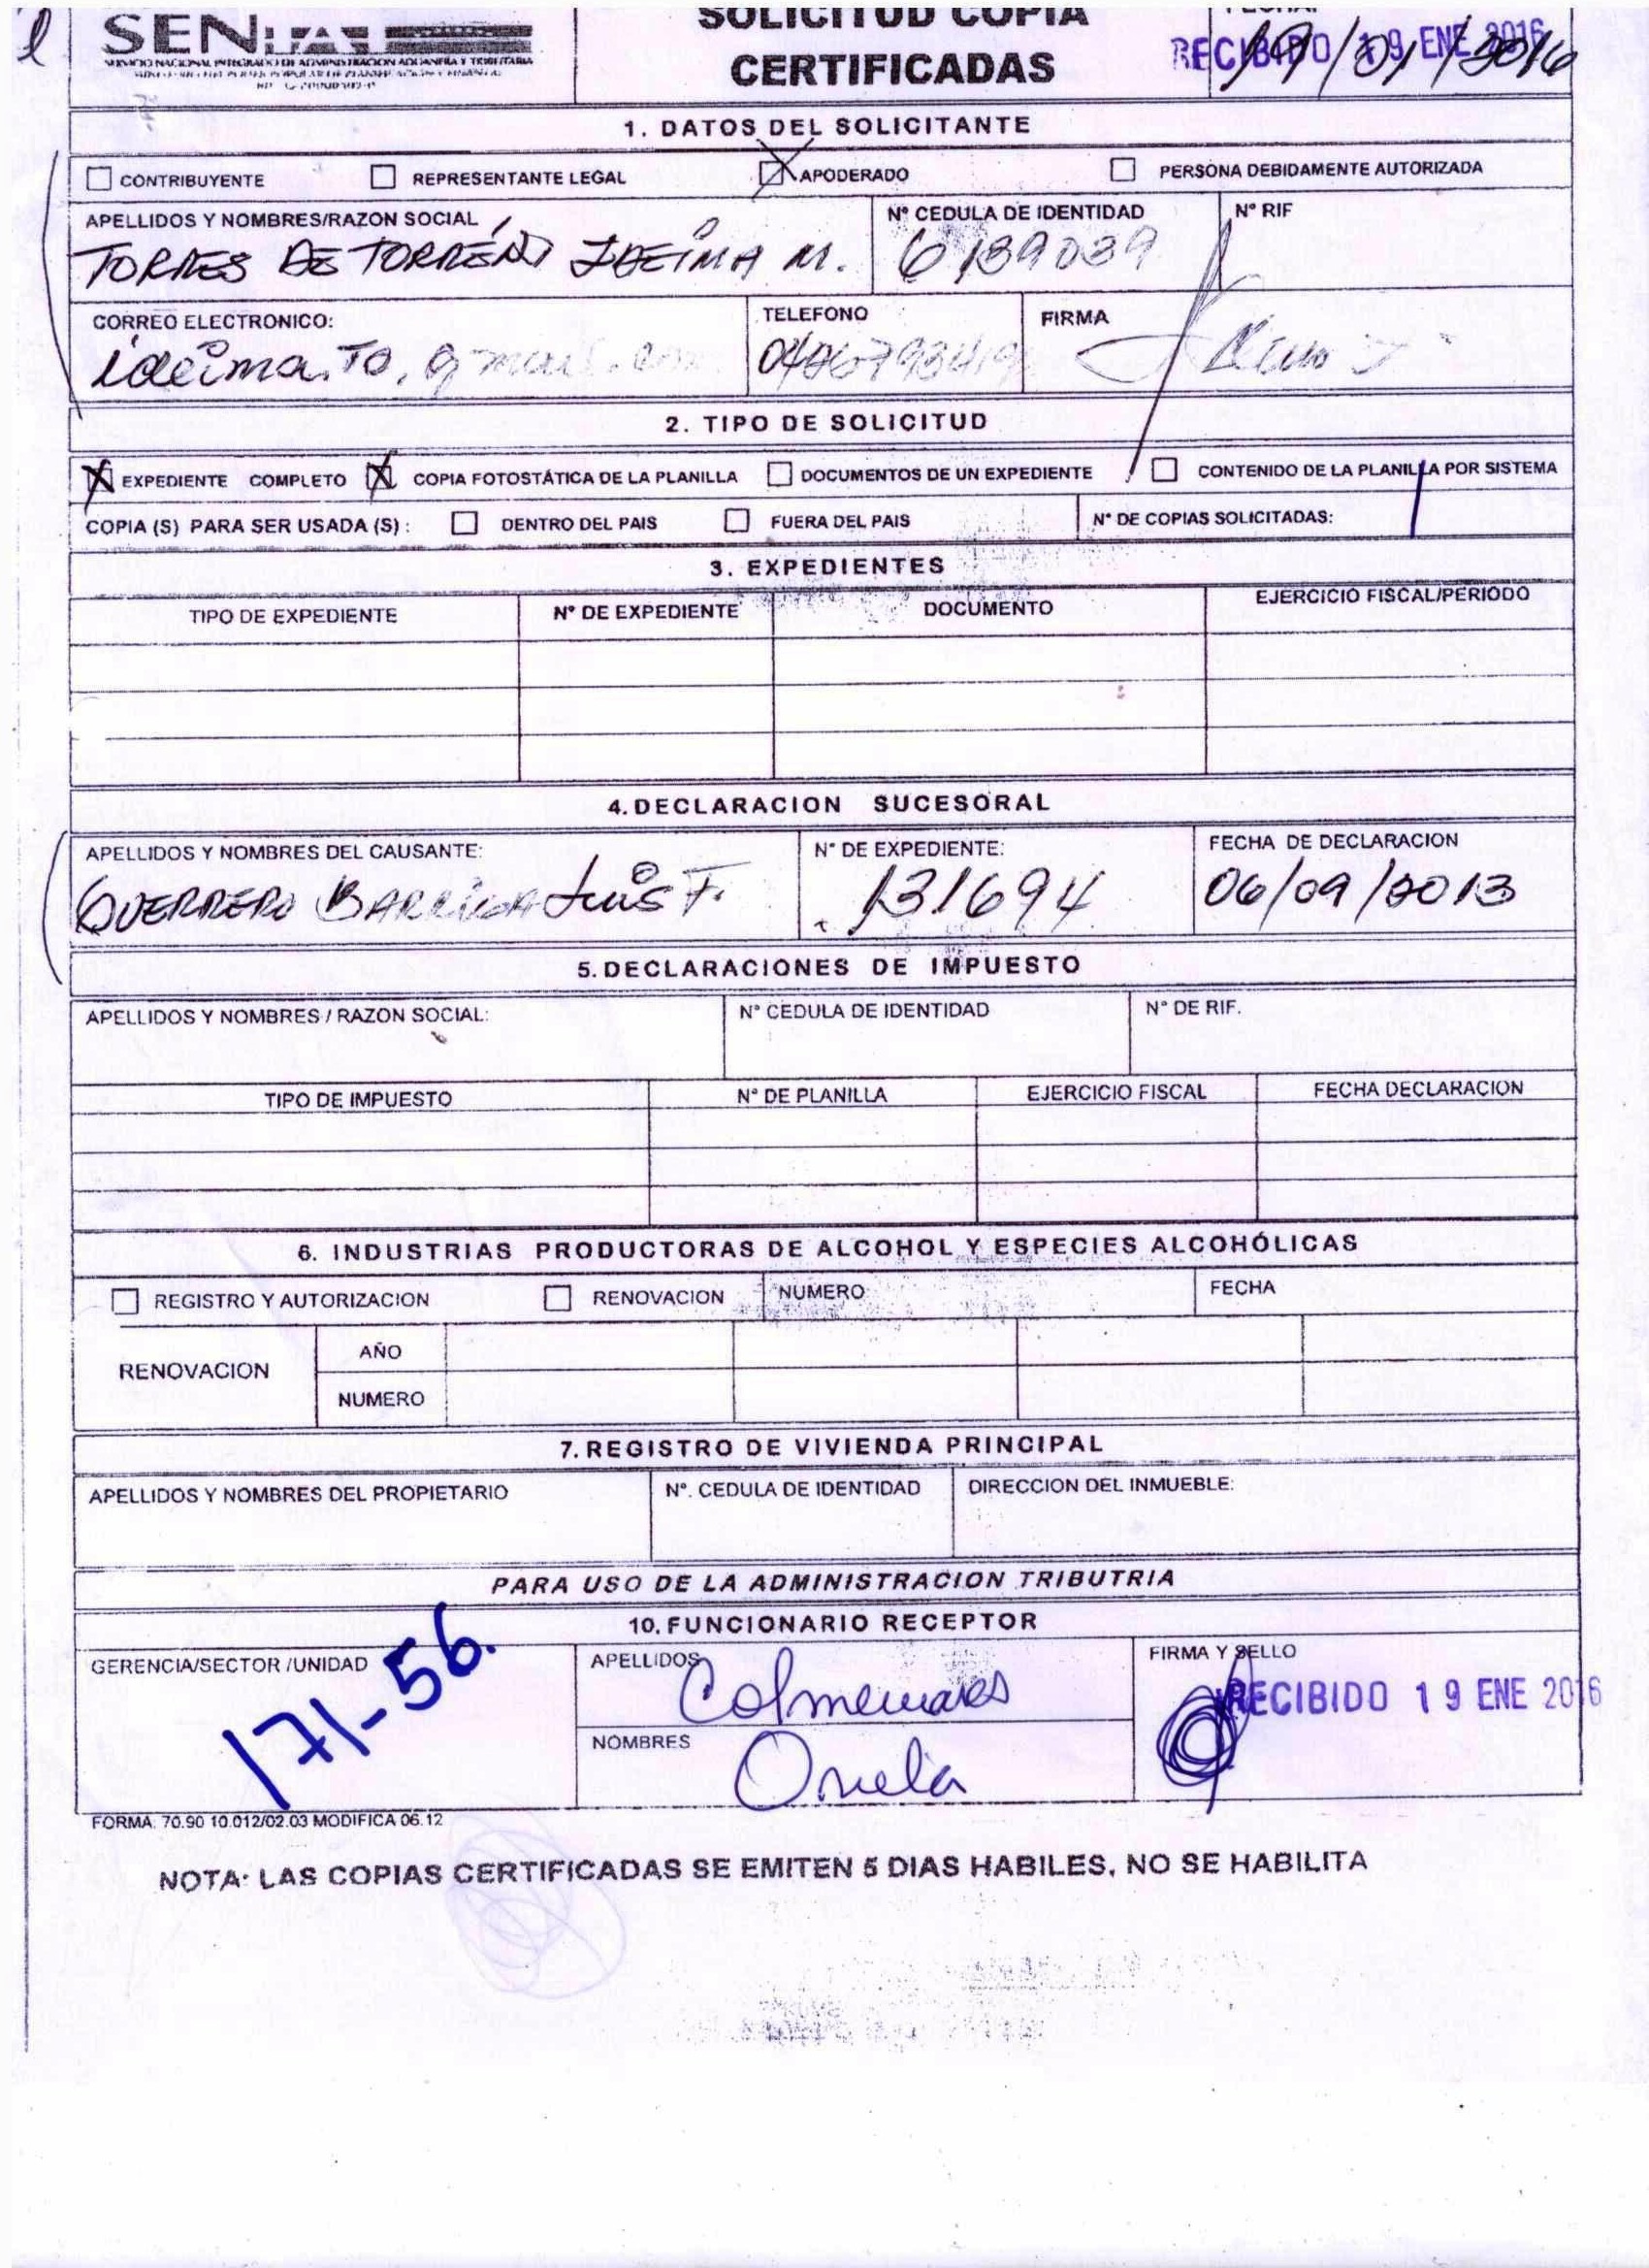 SENIAT
SERVICIO NACIONAL INTEGRADO DE ADMINISTRACION ADUANERA Y TRIBUTARIA
SOLICITUD COPIA
CERTIFICADAS
FECHA:
RECIBIDO 19 ENE 2016
19/01/2016
1. DATOS DEL SOLICITANTE
CONTRIBUYENTE REPRESENTANTE LEGAL APODERADO PERSONA DEBIDAMENTE AUTORIZADA
APELLIDOS Y NOMBRES/RAZON SOCIAL N° CEDULA DE IDENTIDAD N° RIF
TORRES DE IDEIMA M. 6139039
CORREO ELECTRONICO: TELEFONO FIRMA
2. TIPO DE SOLICITUD
X EXPEDIENTE COMPLETO X COPIA FOTOSTÁTICA DE LA PLANILLA DOCUMENTOS DE UN EXPEDIENTE CONTENIDO DE LA PLANILLA POR SISTEMA
COPIA (S) PARA SER USADA (S) : DENTRO DEL PAIS FUERA DEL PAIS N° DE COPIAS SOLICITADAS: 1
3. EXPEDIENTES
TIPO DE EXPEDIENTE N° DE EXPEDIENTE DOCUMENTO EJERCICIO FISCAL/PERIODO
4. DECLARACION SUCESORAL
APELLIDOS Y NOMBRES DEL CAUSANTE: N° DE EXPEDIENTE: FECHA DE DECLARACION
GUERRERO Luis F. 131694 06/09/2013
5. DECLARACIONES DE IMPUESTO
APELLIDOS Y NOMBRES / RAZON SOCIAL: N° CEDULA DE IDENTIDAD N° DE RIF.
TIPO DE IMPUESTO N° DE PLANILLA EJERCICIO FISCAL FECHA DECLARACION
6. INDUSTRIAS PRODUCTORAS DE ALCOHOL Y ESPECIES ALCOHÓLICAS
REGISTRO Y AUTORIZACION RENOVACION NUMERO FECHA
RENOVACION AÑO
NUMERO
7. REGISTRO DE VIVIENDA PRINCIPAL
APELLIDOS Y NOMBRES DEL PROPIETARIO N°. CEDULA DE IDENTIDAD DIRECCION DEL INMUEBLE:
PARA USO DE LA ADMINISTRACION TRIBUTRIA
10. FUNCIONARIO RECEPTOR
GERENCIA/SECTOR /UNIDAD APELLIDOS FIRMA Y SELLO
171-56. Colmenares RECIBIDO 19 ENE 2016
NOMBRES
FORMA: 70.90 10.012/02.03 MODIFICA 06.12
NOTA: LAS COPIAS CERTIFICADAS SE EMITEN 5 DIAS HABILES, NO SE HABILITA